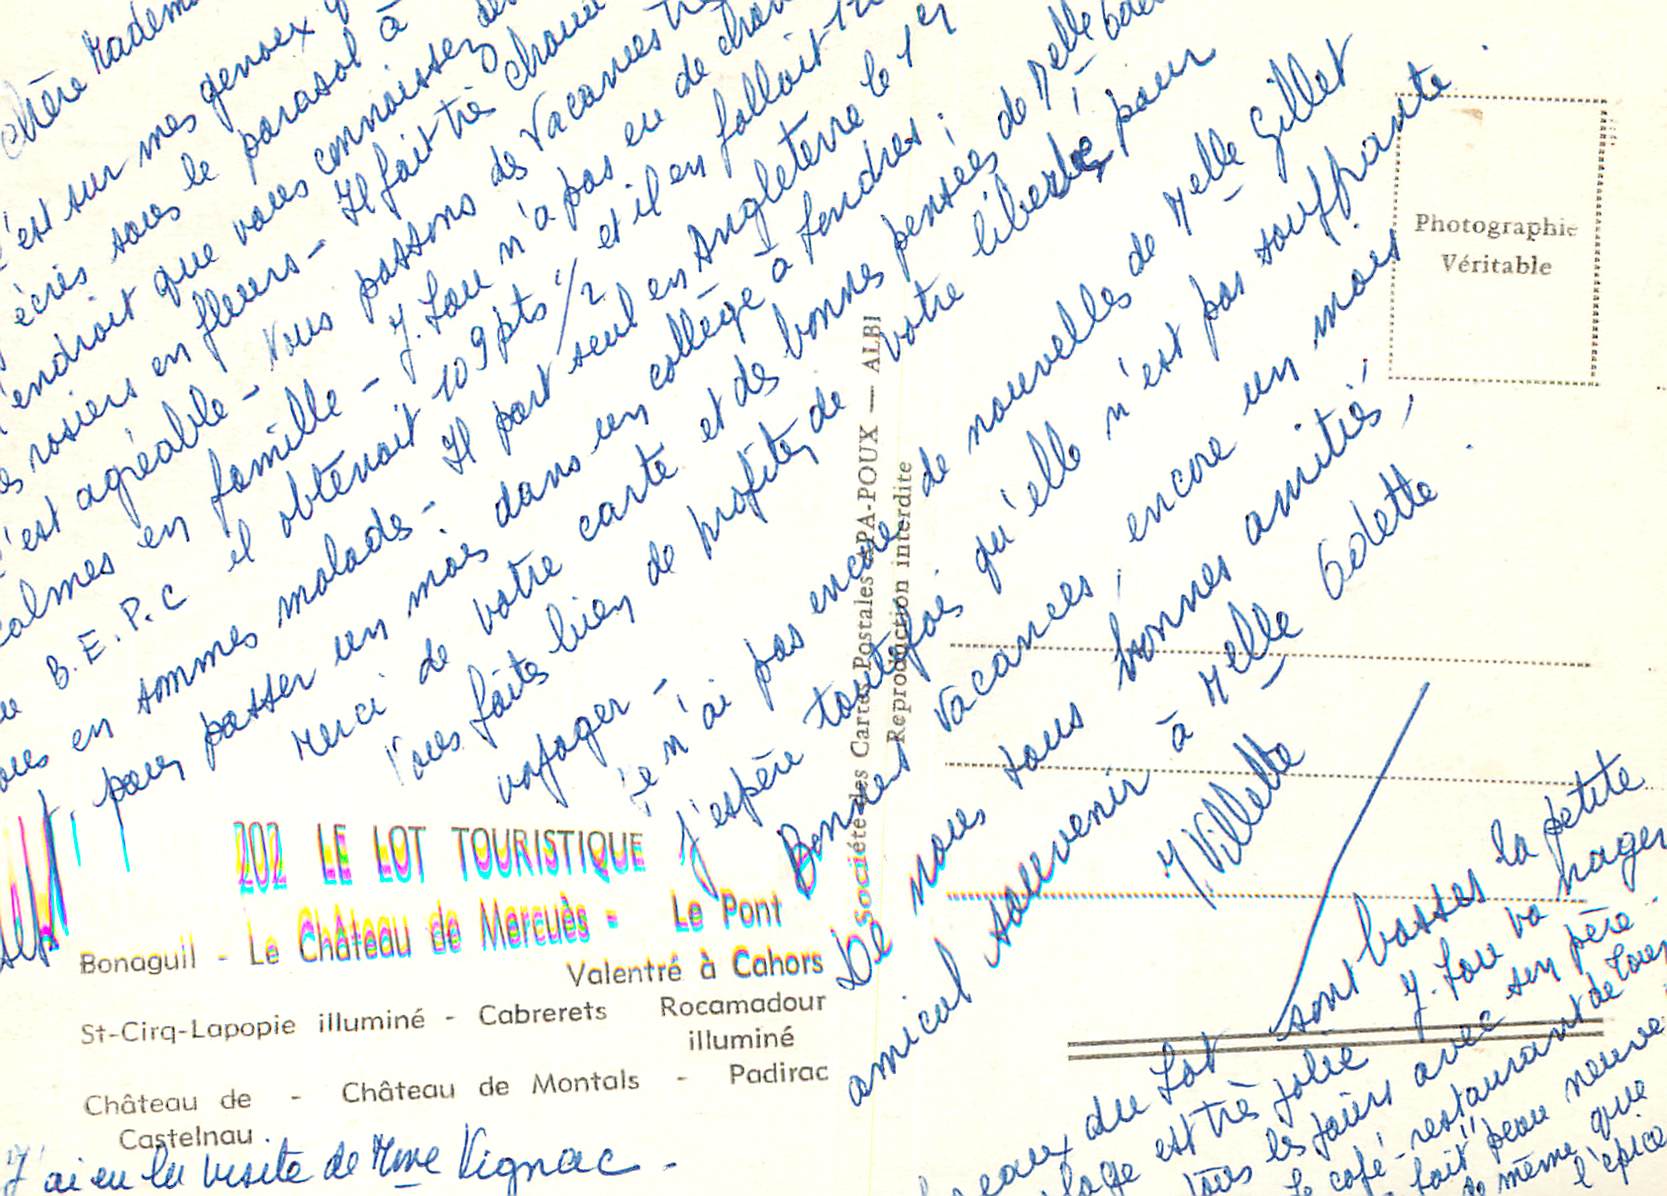 Chère Madem
c'est sur mes genoux
écris sous le parasol à
l'endroit que vous connaissez
rosiers en fleurs - Il fait très chaud
c'est agréable - Nous passons des vacances
calmes en famille - J. Lou n'a pas eu de chance
B.E.P.C il obtenait 109 pts 1/2 et il en fallait
en sommes malades - Il part seul en Angleterre le 1er
pour passer un mois dans un collège à Londres ;
Merci de votre carte et des bonnes pensées de Melle
Vous faites bien de profiter de votre liberté pour
voyager -
Je n'ai pas encore de nouvelles de Melle Gillet
J'espère toutefois qu'elle n'est pas souffrante.
Bonnes vacances, encore un mois
De nous tous bonnes amitiés,
amical souvenir à Melle Odette.
M Villette
Photographie
Véritable
Société des Cartes Postales APA-POUX — ALBI
Reproduction interdite
202 LE LOT TOURISTIQUE
Bonaguil - Le Château de Mercuès - Le Pont
Valentré à Cahors
St-Cirq-Lapopie illuminé - Cabrerets Rocamadour
illuminé
Château de - Château de Montals - Padirac
Castelnau.
J'ai eu la visite de Mme Vignac -
eaux du Lot sont basses la petite
plage est très jolie J. Lou va nager
tous les jours avec son père.
le café-restaurant de
fait "peau neuve"
de même que
l'épice